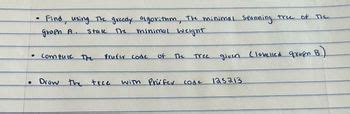 • Find, using the greedy algorithm, the minimal spanning tree of the
graph A. State the minimal weight
• Compute the Prufer code of the tree given (labelled graph B)
• Draw the tree with Prüfer code 125213